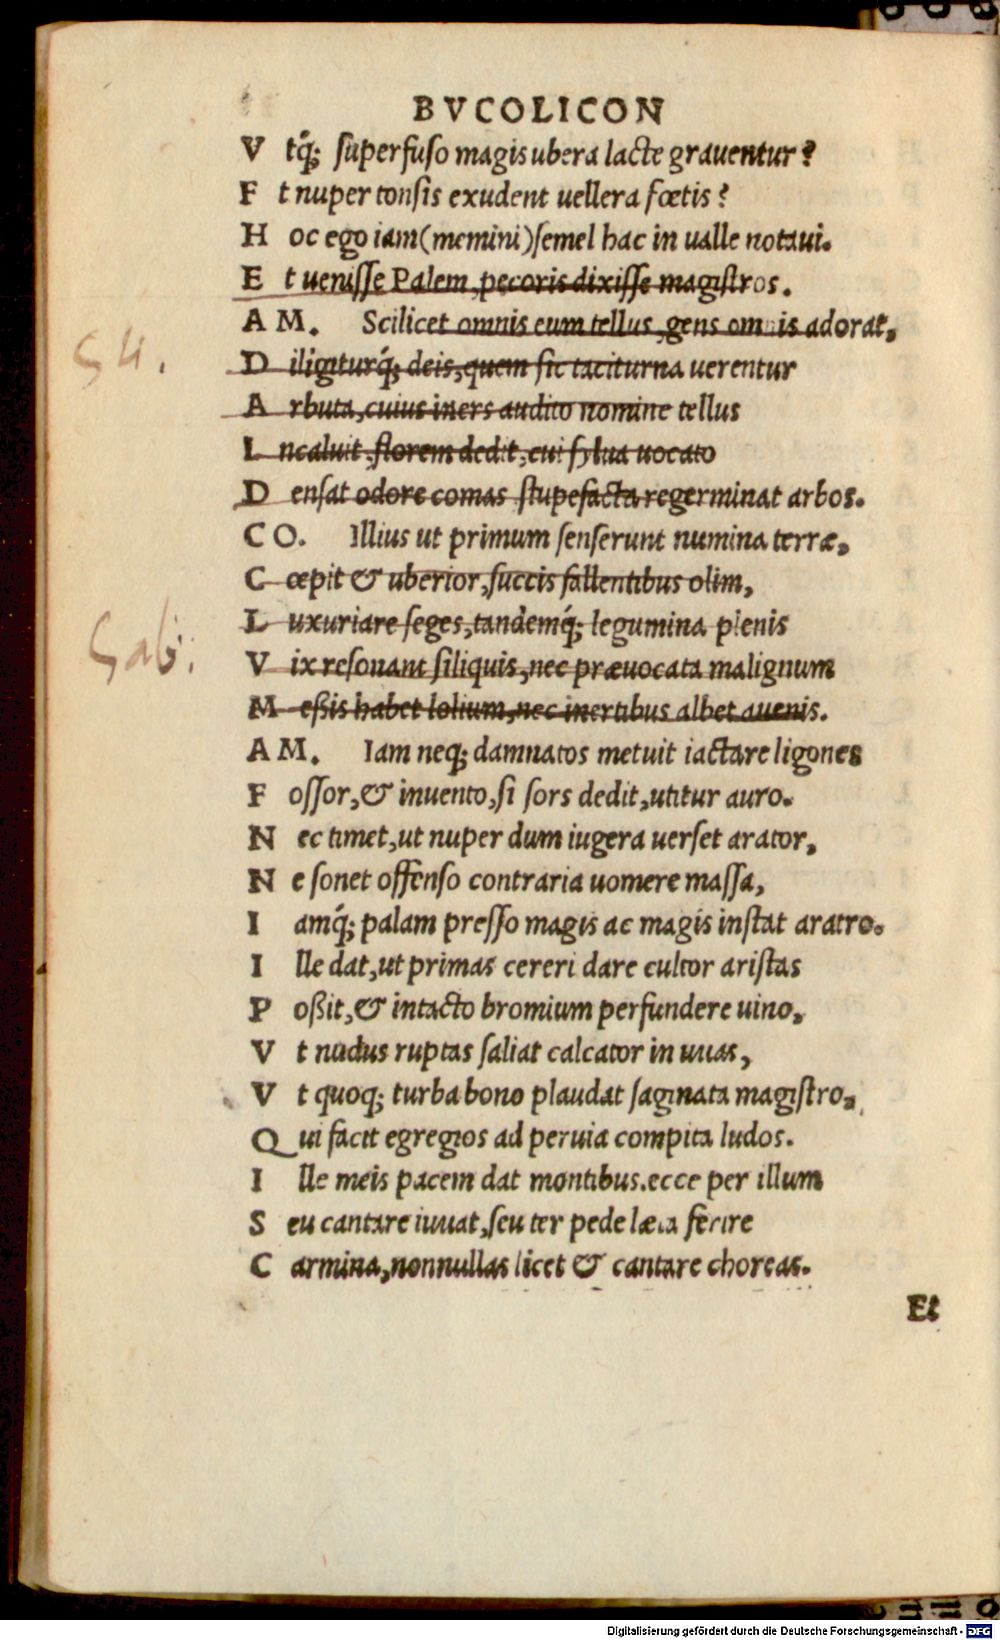 BVCOLICON
V tq́; superfuso magis ubera lacte grauentur?
F t nuper tonsis exudent uellera fœtis?
H oc ego iam (memini) semel hac in ualle notaui.
E t uenisse Palem, pecoris dixisse magistros.
AM. Scilicet omnis eum tellus, gens omnis adorat,
Su.
D iligiturq́; deis, quem sic taciturna uerentur
A rbuta, cuius iners audito nomine tellus
I ncaluit, florem dedit, cui sylua uocato
D ensat odore comas stupefacta regerminat arbos.
CO. Illius ut primum senserunt numina terræ,
C œpit & uberior, succis fallentibus olim,
L uxuriare seges, tandemq́; legumina plenis
Sab.
V ix resonant siliquis, nec præuocata malignum
M eßis habet lolium, nec inertibus albet auenis.
AM. Iam neq; damnatos metuit iactare ligones
F ossor, & inuento, si sors dedit, utitur auro.
N ec timet, ut nuper dum iugera uerset arator,
N e sonet offenso contraria uomere massa,
I amq́; palam presso magis ac magis instat aratro.
I lle dat, ut primas cereri dare cultor aristas
P oßit, & intacto bromium perfundere uino,
V t nudus ruptas saliat calcator in uuas,
V t quoq; turba bono plaudat saginata magistro,
Q ui facit egregios ad peruia compita ludos.
I lle meis pacem dat montibus. ecce per illum
S eu cantare iuuat, seu ter pede læta ferire
C armina, nonnullas licet & cantare choreas.
Et
Digitalisierung gefördert durch die Deutsche Forschungsgemeinschaft - DFG